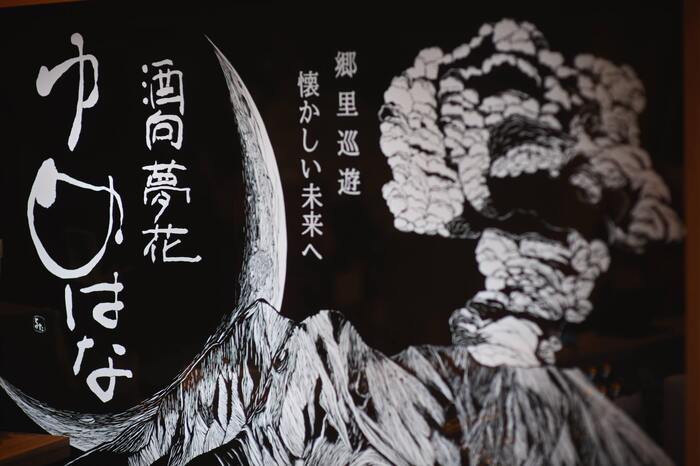 郷里巡遊
懐かしい未来へ
酒向夢花
ゆめはな